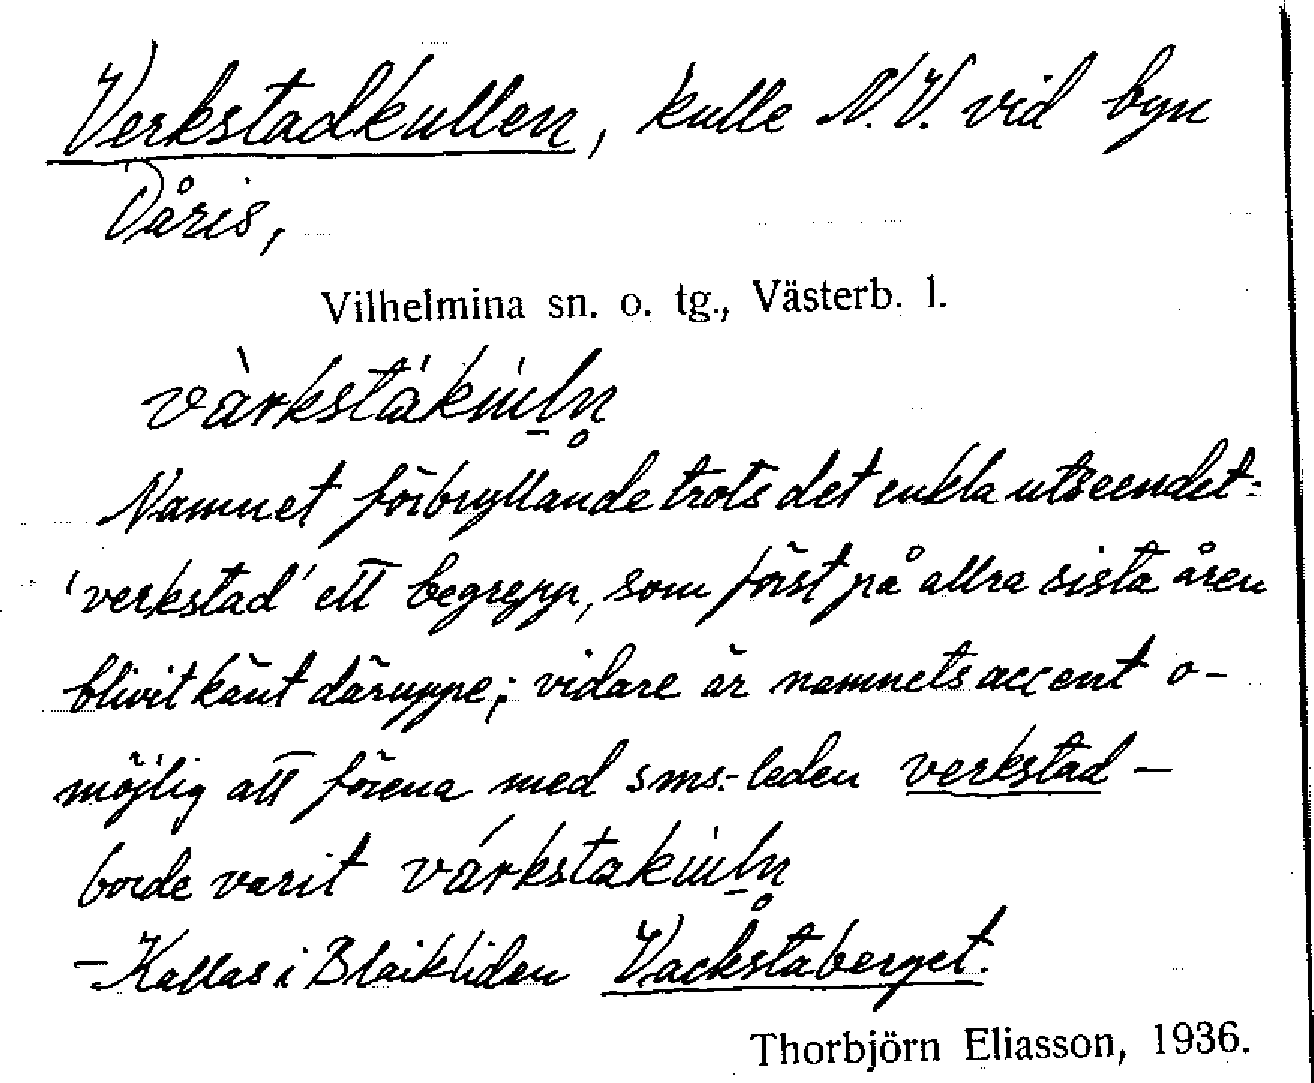 Verkstadkullen, kulle N.V. vid byn
Dåris,
Vilhelmina sn. o. tg., Västerb. l.
Namnet förbryllande trots det enkla utseendet:
'verkstad' ett begrepp, som först på allra sista åren
blivit känt däruppe; vidare är namnets accent o-
möjlig att förena med sms.-leden verkstad –
borde varit
– Kallas i Blaikliden Vackstaberget.
Thorbjörn Eliasson, 1936.